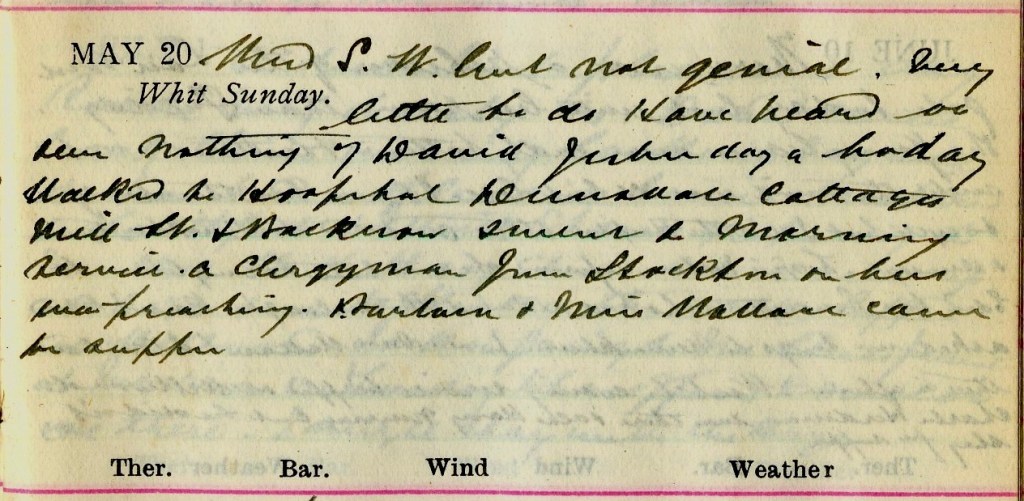 MAY 20 Wind S. W. but not genial. Very
Whit Sunday.
little to do Have heard or
seen nothing of David yesterday & today
Walked to Hospital Cottages
Mill St. & Backrow & went to Morning
Service. a Clergyman from Stockton on tees
was preaching. Barbara & Miss Wallace came
to supper
Ther. Bar. Wind Weather